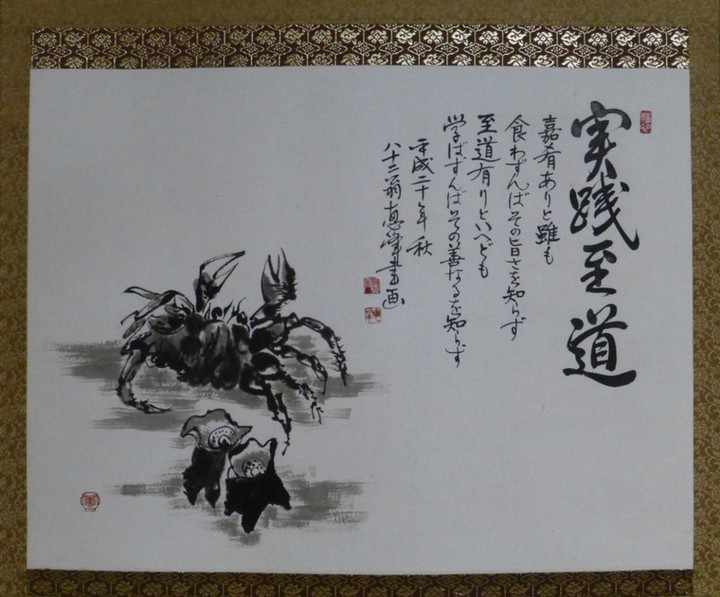 実践至道
嘉肴ありと雖も
食わずんばその旨さを知らず
至道有りといへども
学ばずんばその善なるを知らず
平成二十年秋
八十二翁恵峰書画